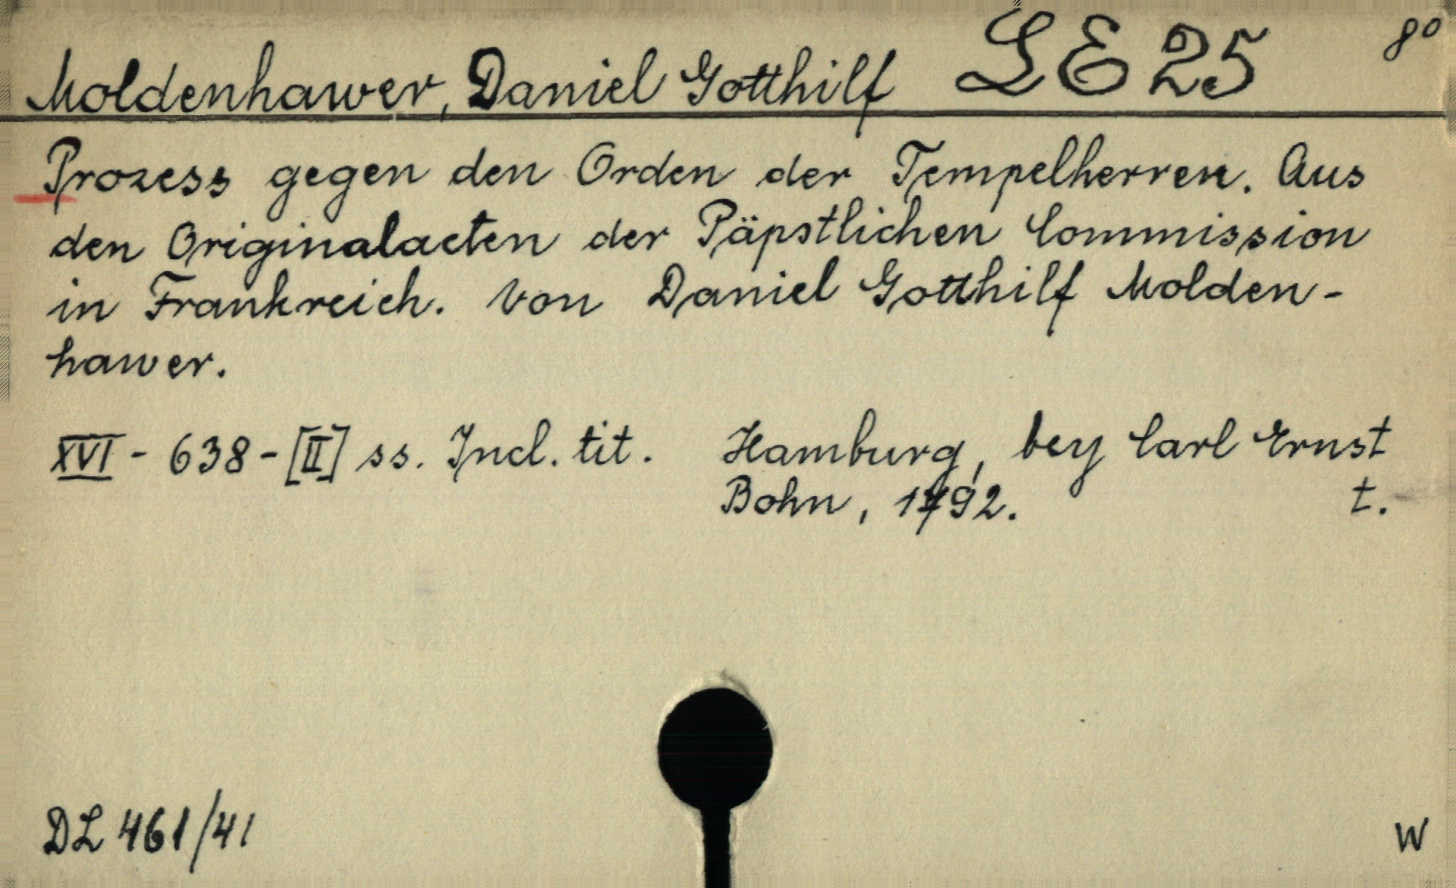 Moldenhawer, Daniel Gotthilf LE 25 8°
Prozess gegen den Orden der Tempelherren. Aus
den Originalacten der Päpstlichen Commission
in Frankreich. Von Daniel Gotthilf Molden-
hawer.
XVI - 638 - [II] ss. Incl. tit. Hamburg, bey Carl Ernst
Bohn, 1792. t.
DL 461/41 W